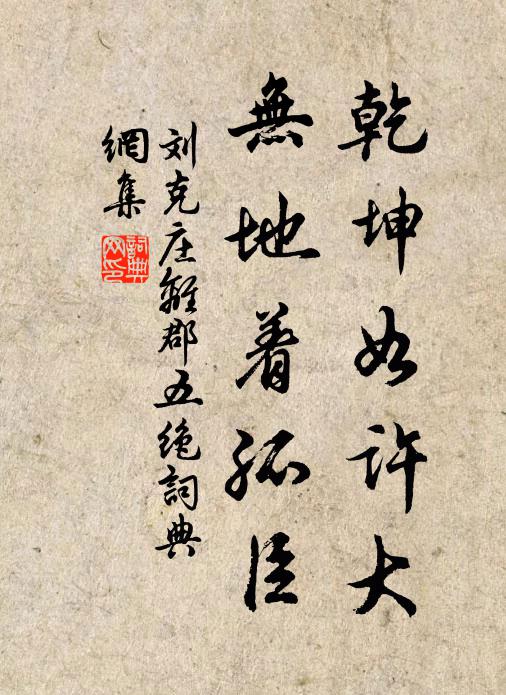 乾坤如許大
無地着孤臣
刘克庄離郡五绝詞典
網集
詞典
网印